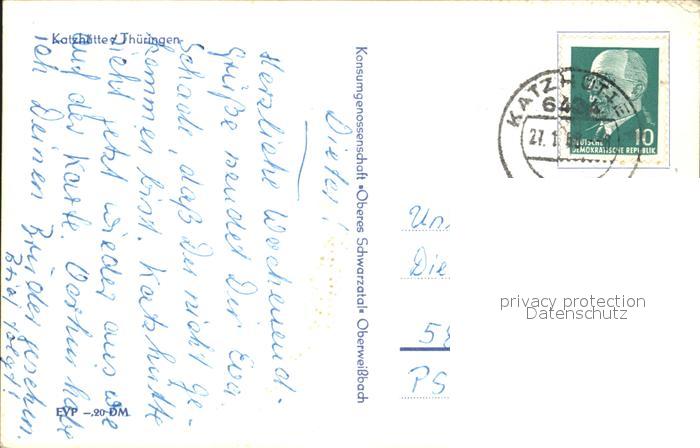 Katzhütte / Thüringen
Dieter!
Herzliche Wochenend-
grüße sendet Dir Eva.
Schade, daß Du nicht ge-
kommen bist. Katzhütte
sieht jetzt wieder aus wie
auf der Karte. Vorhin habe
ich Deinen Bruder gesehen.
Brief folgt!
EVP –,20 DM
Konsumgenossenschaft »Oberes Schwarzatal« Oberweißbach
KATZHÜTTE
6434
27.1
10
DEUTSCHE
DEMOKRATISCHE REPUBLIK
Die
PS
privacy protection
Datenschutz